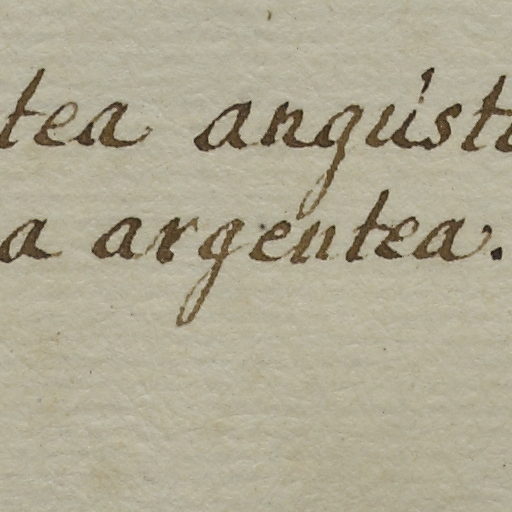 tea angúst
a argentea.